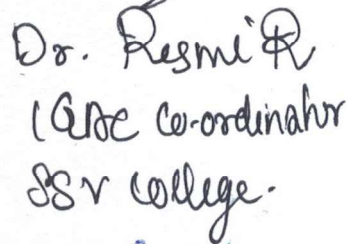 Dr. Resmi R
IQAC Co-ordinator
SSV College.